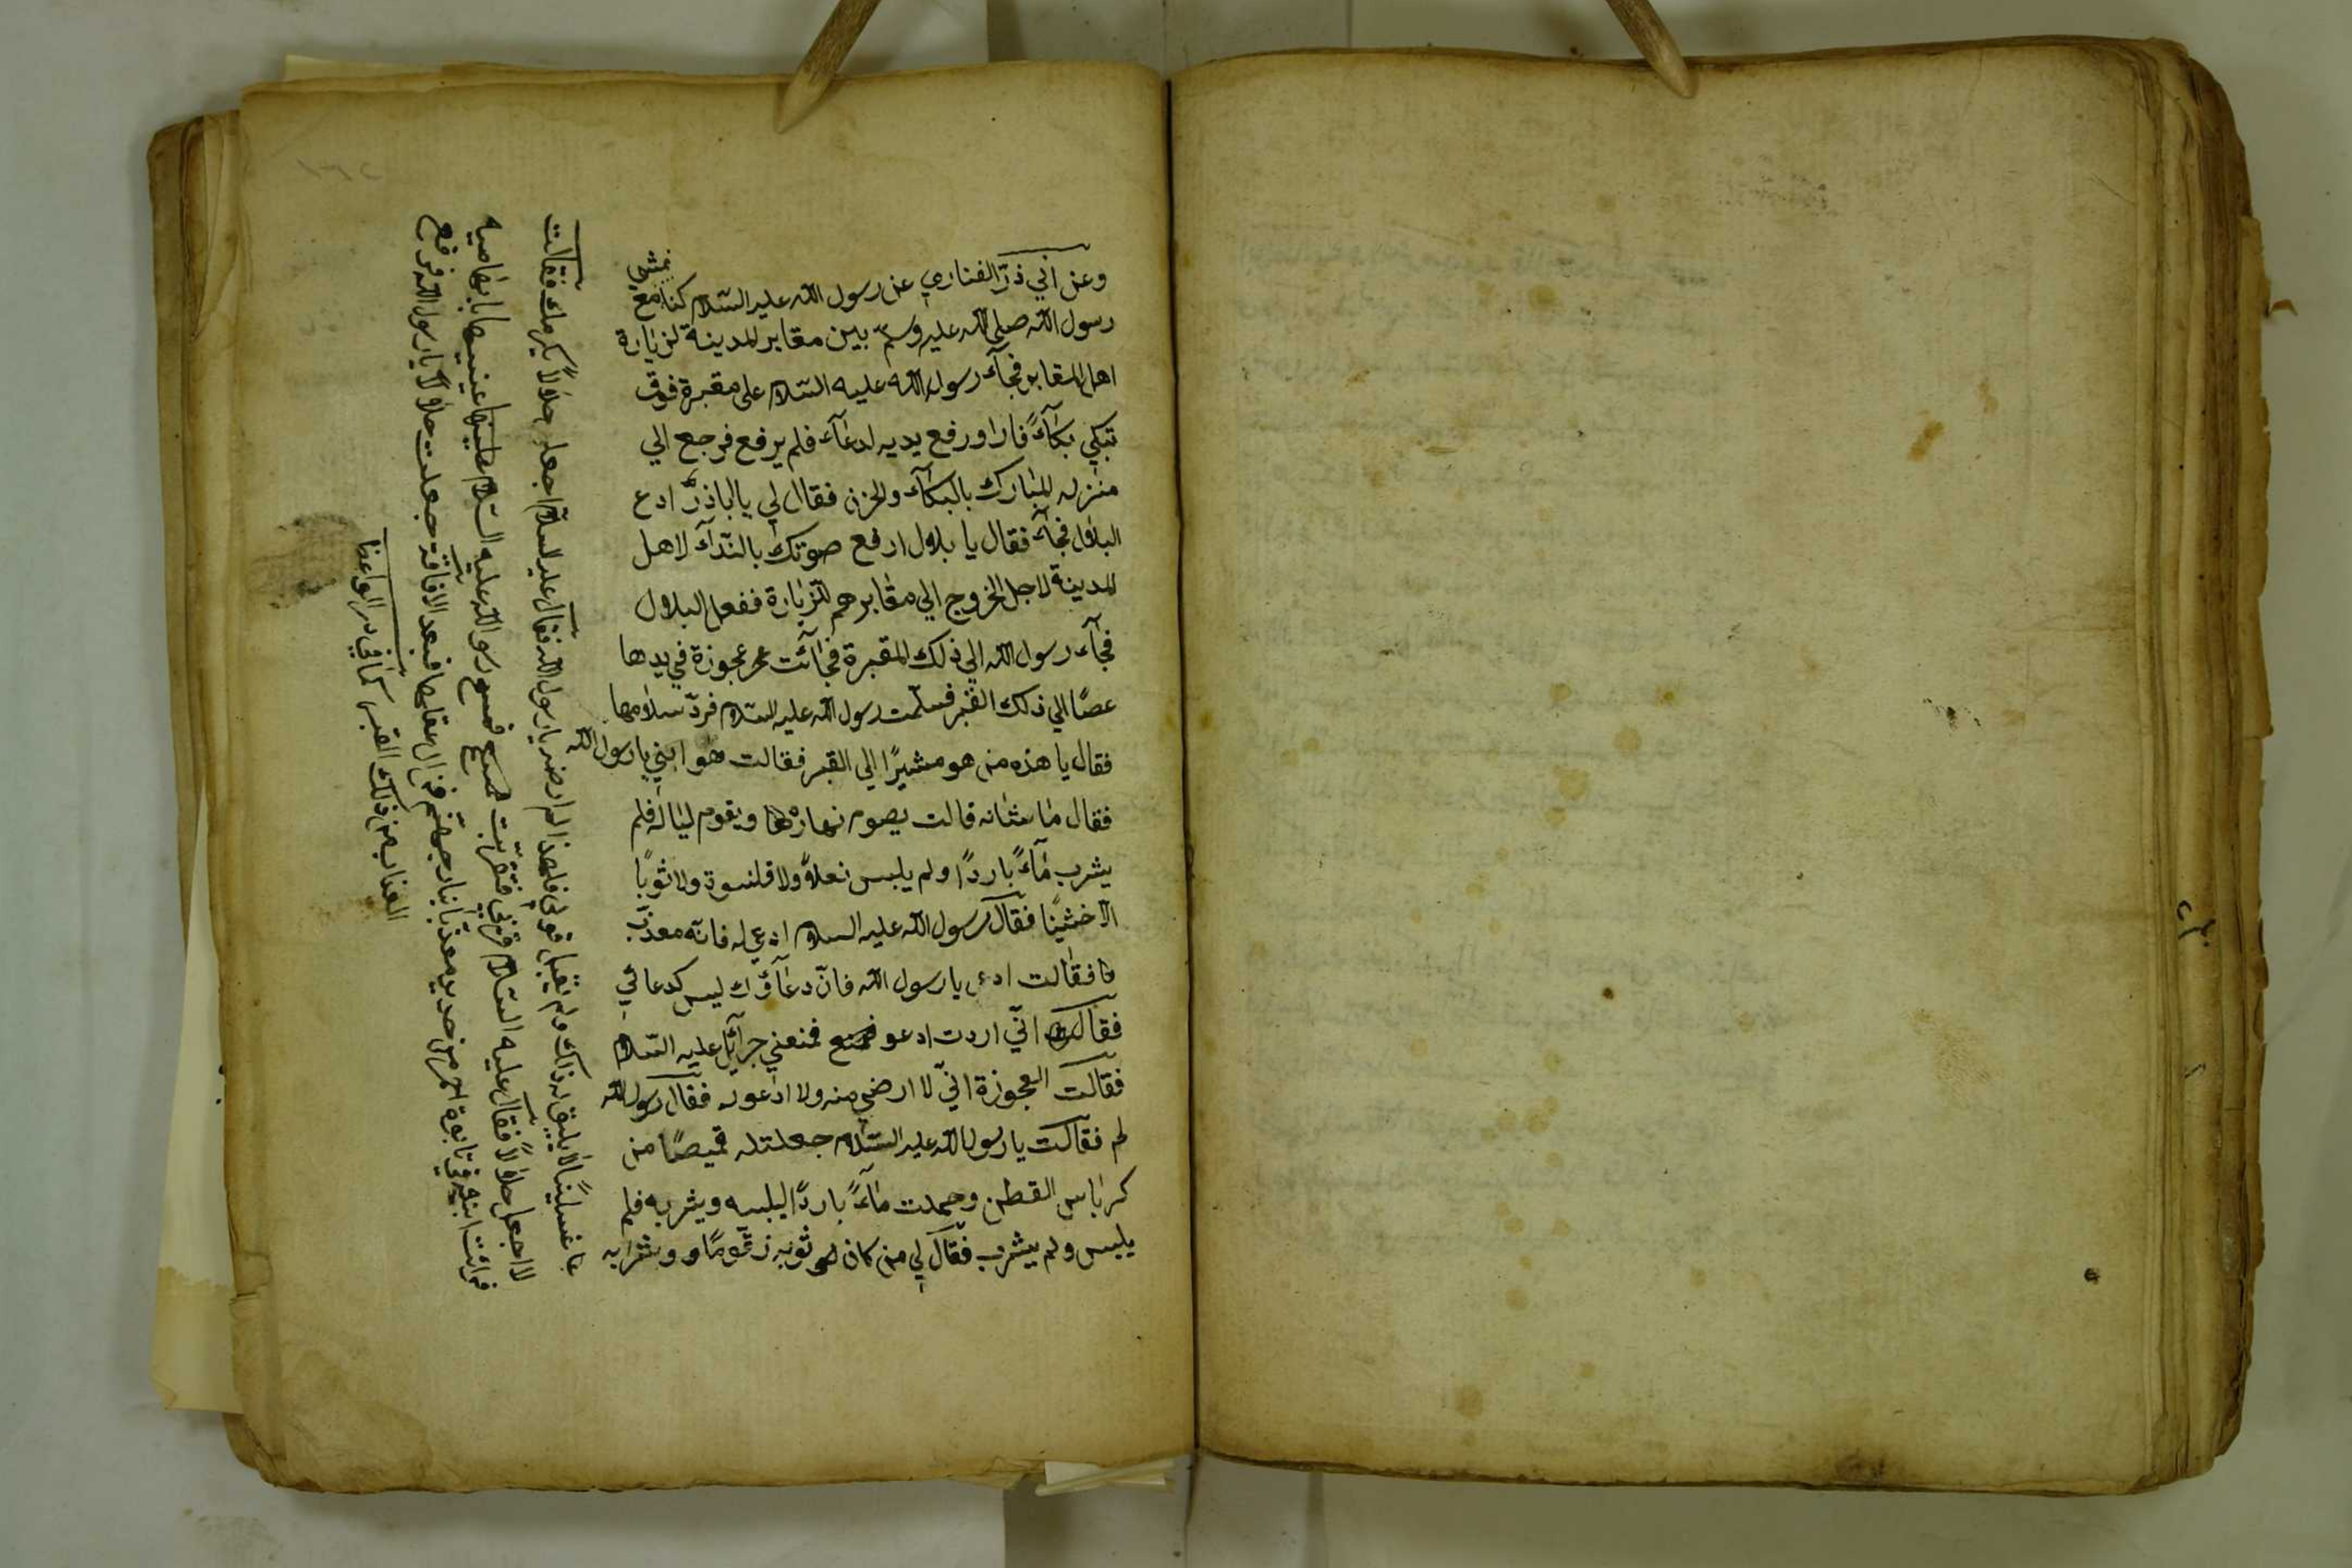 وعن ابي ذرّ الغفاري عن رسول الله عليه السّلام كنا نمشي مع
رسول الله صلى الله عليه وسلم بين مقابر المدينة لزيارة
اهل المقابر فجآء رسول الله عليه السّلام على مقبرة فوقف
تبكي بكآءً فاراد رفع يديه لدعآء فلم يرفع فرجع الي
منزله المبارك بالبكآء والحزن فقال لي يا اباذرّ ادع
البلال فجآء فقال يا بلال ارفع صوتك بالنّدآء لاهل
المدينة لاجل الخروج الي مقابرهم للزيارة ففعل البلال
فجآء رسول الله الي ذلك المقبرة فجآئت عجوزة في يدها
عصًا الي ذلك القبر فسلّمت رسول الله عليه السّلام فردّ سلامها
فقال يا هذه من هو مشيرًا الي القبر فقالت هو ابني يا رسول الله
فقال ما شانه قالت يصوم نهاره ويقوم لياله فلم
يشرب مآءً باردًا ولم يلبس نعلًا ولا قلنسوة ولا ثوبًا
الّا خشينًا فقال رسول الله عليه السلام ادعي له فانّه معذّب
فقالت ادع يا رسول الله فانّ دعآؤك ليس كدعائي
فقال انّي اردت ادعو فمنعني جبرآئيل عليه السّلام
فقالت العجوزة انّي لا ارضي منه ولا ادعو له فقال رسول الله
لم فقالت يا رسول الله عليه السّلام جعلت له قميصًا من
كرباس القطن وحملت مآءً باردًا ليلبسه ويشربه فلم
يلبس ولم يشرب فقال لي من كان ثوبه زقّومًا وشرابه
غسلينًا لا يليق له ذلك ولم يقبل قولي فلهذا لم ارض يا رسول الله فقال عليه السلام اجعله حلالًا يكرمك فقالت
لا اجعل حلالًا فقال عليه السّلام قربي فتقربت فمسح رسول الله عليه السّلام عينيها بابهاميه
فرائت ابنها في تابوة احمر من حديد معذبًا بنار جهنّم فزال عقلها فبعد الافاقة جعلت حلالًا يا رسول الله فرفع
العذاب من ذلك القبر كما في الواعظ